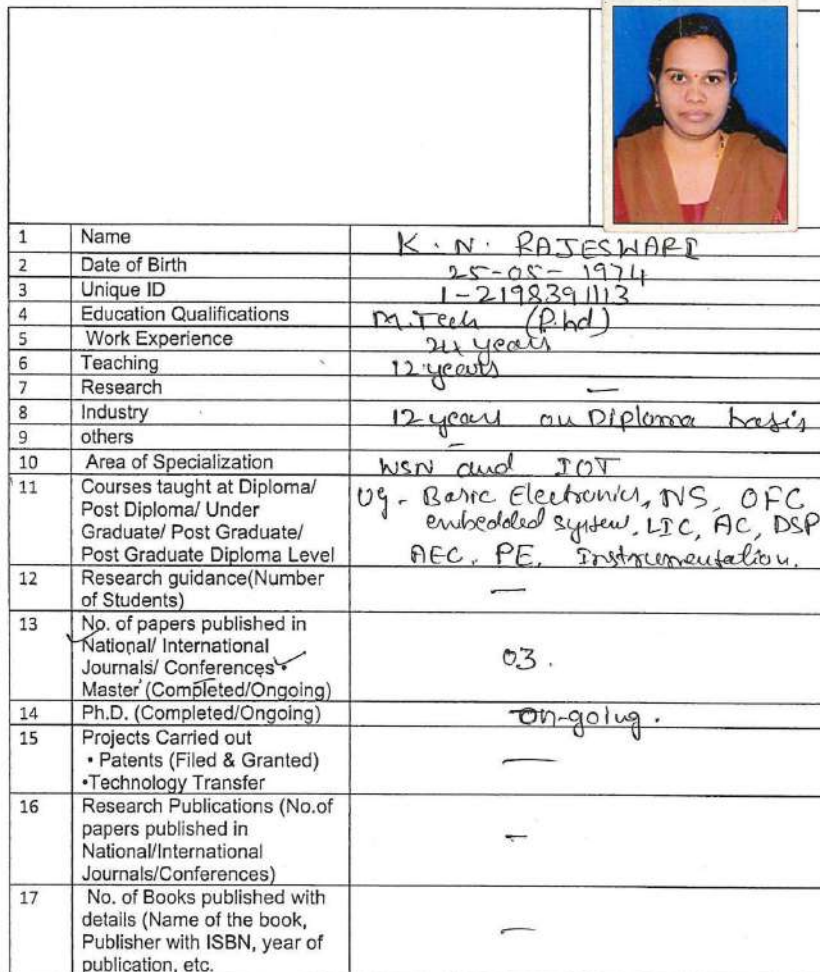 1 Name K. N. RAJESWARI
2 Date of Birth 25-05-1974
3 Unique ID 1-2198391113
4 Education Qualifications M.Tech (P.hd)
5 Work Experience 24 years
6 Teaching 12 years
7 Research —
8 Industry 12 years on Diploma basis
9 others –
10 Area of Specialization WSN and IOT
11 Courses taught at Diploma/ UG - Basic Electronics, NS, OFC
Post Diploma/ Under embedded system, LIC, AC, DSP
Graduate/ Post Graduate/ AEC, PE, Instrumentation.
Post Graduate Diploma Level
12 Research guidance(Number —
of Students)
13 No. of papers published in
National/ International
Journals/ Conferences • 03.
Master (Completed/Ongoing)
14 Ph.D. (Completed/Ongoing) on-going.
15 Projects Carried out
• Patents (Filed & Granted) —
•Technology Transfer
16 Research Publications (No.of
papers published in –
National/International
Journals/Conferences)
17 No. of Books published with
details (Name of the book,
Publisher with ISBN, year of —
publication, etc.